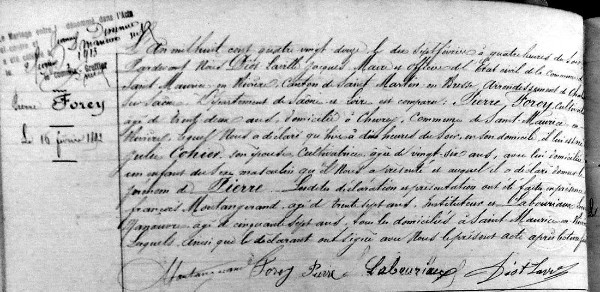 Le Mariage entre
dénommé dans l'Acte
ci-contre et
a été
1913
la commune
Pierre Forey
Le 16 février 1892
L'an mil huit cent quatre vingt douze, le dix sept février à quatre heures du soir
Pardevant Nous Diot Jacques Maire et Officier de l'Etat civil de la Commune de
Saint Maurice en Rivière, Canton de Saint Martin en Bresse, Arrondissement de Chalon
sur Saône, Département de Saône et Loire, est comparu: Pierre Forey, cultivateur
agé de trente deux ans, domicilié à Commune de Saint-Maurice en
Rivière, lequel Nous a déclaré que hier à dix heures du soir, en son domicile, il lui est né
de Julie son épouse, Cultivatrice, agée de vingt-six ans, avec lui domiciliée
un enfant du sexe masculin qu'il Nous a présenté et auquel il a déclaré donner le
prénom de Pierre. Lesdites déclaration et présentation ont été faites en présence de
François Montangerand, agé de trente sept ans, Instituteur et Labeuriaux
agé de cinquante sept ans, tous deux domiciliés à Saint-Maurice en Rivière
Lesquels ainsi que le déclarant ont signé avec Nous le présent acte après lecture
Montangerand Forey Pierre Labeuriaux Diot